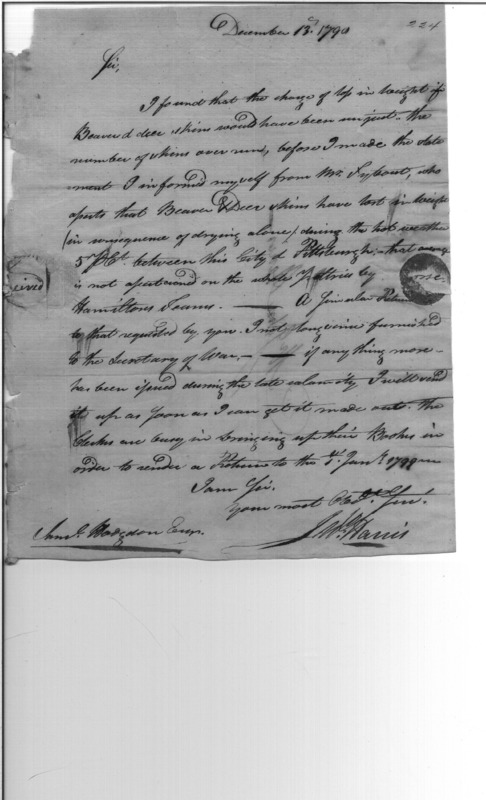 224
December 13th 1798
Sir,
I found that the charge of loss in weight of
Beaver & deer skins would have been unjust - the
number of skins over run, before I made the state
ment I informed myself from Mr. who
asserts that Beaver & Deer skins have lost in weight
(in consequence of drying alone) during the hot weather
5 P Ct. between this City & Pittsburgh, that
is not experienced on the whole Peltries by
Hamiltons Teams. — A similar Return
to that requested by you. I not long since furnished
to the Secretary of War, — if any thing more
has been issued during the late calamity I will send
it up as soon as I can get it made out. the
Clerks are busy in bringing up their Books in
order to render a Return to the 1st Jany. 1799
I am Sir.
Your most Obedt. Servt.
Saml. Hodgdon Esqr.
Jno. Harris